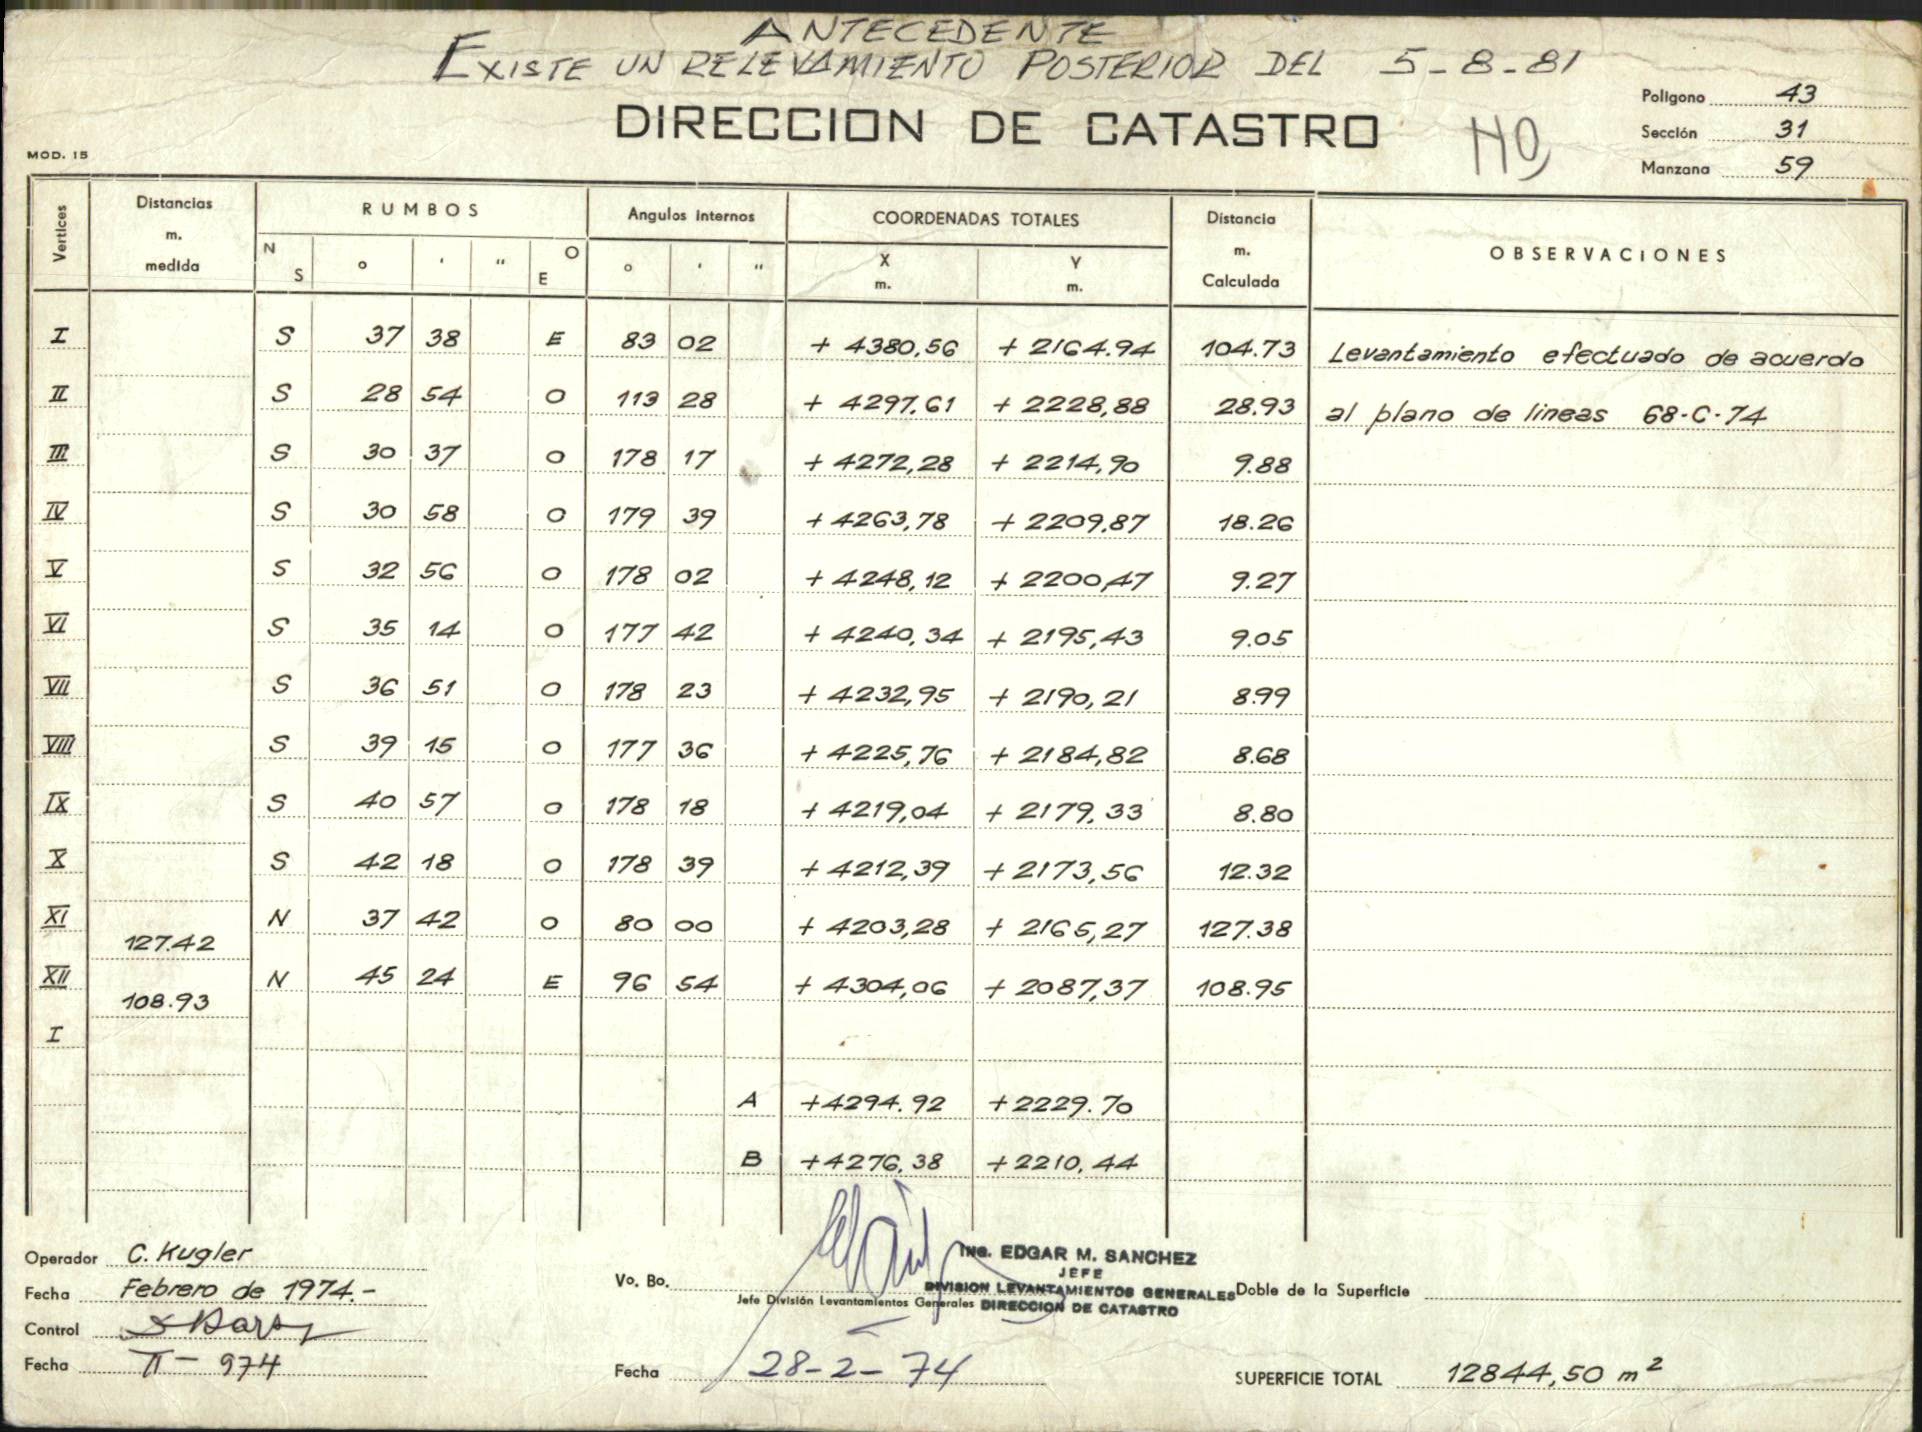 ANTECEDENTE
EXISTE UN RELEVAMIENTO POSTERIOR DEL 5-8-81
DIRECCION DE CATASTRO
Polígono 43
Sección 31
Manzana 59
MOD. 15
Vertices Distancias m. medida RUMBOS Angulos Internos COORDENADAS TOTALES Distancia m. Calculada OBSERVACIONES
N S ° ' " O E ° ' " X m. Y m.
I S 37 38 E 83 02 + 4380,56 + 2164.94 104.73 Levantamiento efectuado de acuerdo
II S 28 54 O 113 28 + 4297,61 + 2228,88 28.93 al plano de lineas 68-C-74
III S 30 37 O 178 17 + 4272,28 + 2214,90 9.88
IV S 30 58 O 179 39 + 4263,78 + 2209,87 18.26
V S 32 56 O 178 02 + 4248,12 + 2200,47 9.27
VI S 35 14 O 177 42 + 4240,34 + 2195,43 9.05
VII S 36 51 O 178 23 + 4232,95 + 2190,21 8.99
VIII S 39 15 O 177 36 + 4225,76 + 2184,82 8.68
IX S 40 57 O 178 18 + 4219,04 + 2179,33 8.80
X S 42 18 O 178 39 + 4212,39 + 2173,56 12.32
XI 127.42 N 37 42 O 80 00 + 4203,28 + 2165,27 127.38
XII 108.93 N 45 24 E 96 54 + 4304,06 + 2087,37 108.95
I
A +4294.92 +2229.70
B +4276,38 +2210,44
Operador C. Kugler
Fecha Febrero de 1974.-
Control
Fecha II - 974
Vo. Bo.
Ing. EDGAR M. SANCHEZ
JEFE
DIVISION LEVANTAMIENTOS GENERALES
DIRECCION DE CATASTRO
Jefe División Levantamientos Generales
Fecha 28-2-74
Doble de la Superficie
SUPERFICIE TOTAL 12844,50 m²